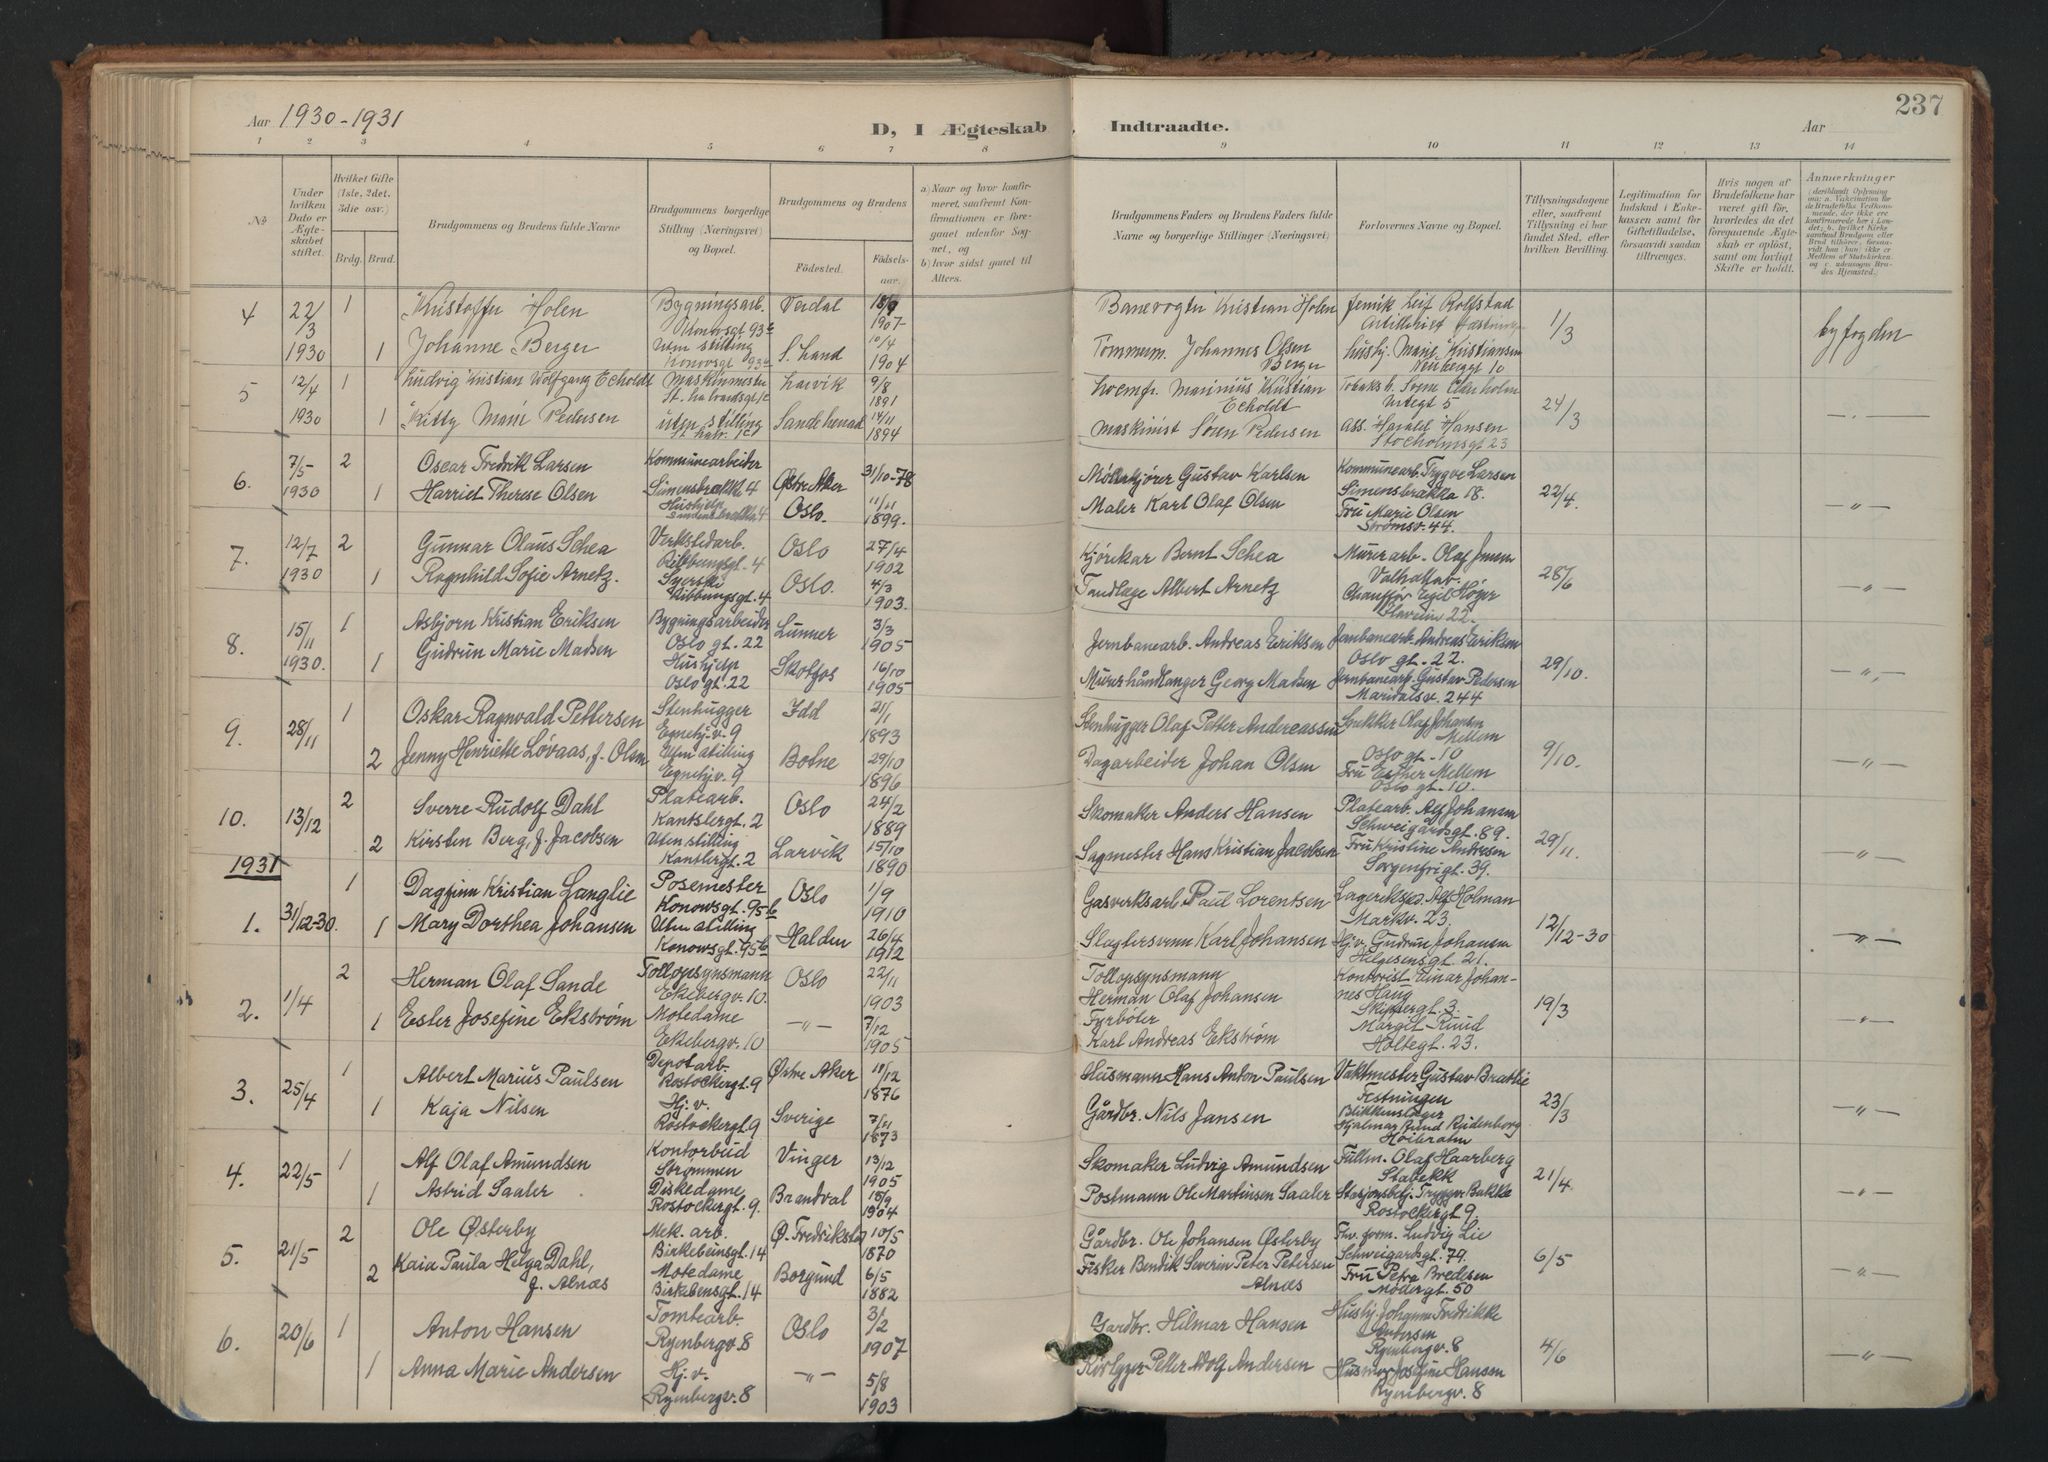 Aar 1930-1931
D, I Ægteskab Indtraadte.
237
Aar
1 2 3 4 5 6 7 8 9 10 11 12 13 14
№
Under hvilken Dato er Ægteskabet stiftet.
Hvilket Gifte (1ste, 2det, 3die osv.)
Brdg. Brud.
Brudgommens og Brudens fulde Navne
Brudgommens borgerlige Stilling (Næringsvei) og Bopæl.
Brudgommens og Brudens
Fødested.
Fødselsaar.
a) Naar og hvor konfirmeret, saafremt Konfirmationen er foregaaet udenfor Sognet, og
b) hvor sidst gaaet til Alters.
Brudgommens Faders og Brudens Faders fulde Navne og borgerlige Stillinger (Næringsvei)
Forlovernes Navne og Bopæl.
Tillysningsdagene eller, saafremt Tillysning ei har fundet Sted, efter hvilken Bevilling.
Legitimation for Indskud i Enkekassen samt for Giftetilladelse, forsaavidt saadan tiltrænges.
Hvis nogen af Brudefolkene har været gift før, hvorledes da det foregaaende Ægteskab er opløst, samt om lovligt Skifte er holdt.
Anmærkninger
4 22/3 1930 1 Kristoffer Holen Bygningsarb. Konowsgt 93c Verdal 18/9 1907 Banevogter Kristian Holen Leif Rolfstad 1/3 byfogden
1 Johanne Berger Uten stilling Konowsgt 93c S. Land 10/4 1904 Tømmerm. Johannes Olsen Berger Hushj. Marie Kristiansen Neuberggt 10
5 12/4 1930 1 Ludvig Kristian Wolfgang Echoldt Maskinmester St. Halvardsgt 1c Larvik 9/8 1891 Marinius Kristian Echoldt 24/3 -"-
1 Kitty Marie Pedersen uten stilling St. Halv. 1c Sandeherred 14/11 1894 Maskinist Søren Pedersen Ass. Harald Hansen Stocholmsgt 23
6. 7/5 1930 2 Oscar Fredrik Larsen Kommunearbeider Simensbrakke 4 Østre Aker 31/10-78 Møllekjører Gustav Karlsen Kommunearb. Trygve Larsen Simensbrakka 18. 22/4. -"-
1 Harriet Therese Olsen Hushjelp Oslo. 11/11 1899. Maler Karl Olaf Olsen Fru Marie Olsen Strømsv. 44.
7. 12/7 1930 2 Gunnar Olaus Schea Verkstedarb. Ribbungsgt. 4 Oslo 27/4 1902 Kjørekar Bernt Schea Murerarb. Olaf Jensen Valhallav. 28/6 -"-
1 Ragnhild Sofie Arnetz. Syerske Ribbungsgt. 4 Oslo. 4/3 1903. Tandlæge Albert Arnetz Chauffør Egil Høyer
8. 15/11 1930. 1 Asbjørn Kristian Eriksen Bygningsarbeider Oslo gt. 22 Lunner 3/3 1905 Jernbanearb. Andreas Eriksen Jernbanearb. Andreas Eriksen Oslo gt. 22. 29/10. -"-
1 Gudrun Marie Madsen Hushjelp Oslo gt. 22 Skotfos 16/10 1905 Murerhåndlanger Georg Madsen Jernbanearb. Gustav Pedersen Maridalsv. 244
9. 28/11 1 Oskar Ragnvald Pettersen Stenhugger Egnehj.v. 9 Idd 21/1 1893 Stenhugger Olaf Petter Andreassen Snekker Olaf Johansen Mellem Oslo gt. 10 9/10. -"-
2 Jenny Henriette Løvaas, f. Olsen Uten stilling Egnehj.v. 9 Botne 29/10 1896 Dagarbeider Johan Olsen Fru Esther Mellem Oslo gt. 10.
10. 13/12 2 Sverre Rudolf Dahl Platearb. Kantslergt. 2 Oslo 24/2 1889 Skomaker Anders Hansen Platearb. Alf Johansen Schweigårdsgt. 89. 29/11. -"-
2 Kirsten Berg, f. Jacobsen Uten stilling Kantslergt. 2 Larvik 15/10 1890 Sagmester Hans Kristian Jacobsen Fru Kristine Andresen Sorgenfrigt. 39.
1931
1. 31/12-30. 1 Dagfinn Kristian Langlie Posemester Konowsgt. 95b Oslo 1/9 1910 Gasverksarb. Paul Lorentsen Lagereksped. Alf Holman Markv. 23. 12/12-30 -"-
1 Mary Dorthea Johansen Uten stilling Konowsgt. 95b Halden 26/4 1912 Slagtersvenn Karl Johansen Hj.v. Gudrun Johansen Helgesensgt. 21.
2. 1/4 2 Herman Olaf Sande Tollopsynsmann Ekebergv. 10. Oslo 22/11 1903 Tollopsynsmann Herman Olaf Johansen Kontorist Einar Johannes Haug Skippergt. 3. 19/3 -"-
1 Ester Josefine Ekstrøm Motedame Ekebergv. 10 -"- 7/12 1905 Fyrbøter Karl Andreas Ekstrøm Margit Ruud Holtegt. 23.
3. 25/4 1 Albert Marius Paulsen Depotarb. Rostockergt. 9 Østre Aker 11/12 1876 Husmann Hans Anton Paulsen Vaktmester Gustav Bratlie Festningen 23/3 -"-
1 Kaja Nilsen Hj. v. Rostockergt. 9 Sverige 7/11 1873 Gårdbr. Nils Jansen Blikkenslager Hjalmar Rund
4. 22/5 1 Alf Olaf Amundsen Kontorbud Strømmen Vinger 13/12 1905 Skomaker Ludvig Amundsen Fullm. Olaf Haarberg Stabekk 21/4. -"-
1 Astrid Saaler Diskedame Rostockergt. 9. Brandval 18/9 1904 Postmann Ole Martinsen Saaler Stasjonsbetj. Trygve Bakke Rostockergt 9.
5. 21/5 2 Ole Østerby Mek. arb. Birkebeinsgt. 14 Ø. Fredrikstad 10/5 1870 Gårdbr. Ole Johansen Østerby Fhv. form. Ludvig Lie Schweigårdsgt. 79. 6/5 -"-
2 Kaia Paula Helga Dahl, f. Alnæs Motedame Birkebensgt. 14 Borgund 6/5 1882 Fisker Bendik Severin Peter Petersen Alnæs Fru Petra Bredesen Mødergt. 50
6. 20/6 1 Anton Hansen Tomtearb. Ryenbergv. 8 Oslo 3/2 1907 Gårdbr. Hilmar Hansen Hushj. Johanne Fredrikke Andersen Ryenbergv. 8 4/6 -"-
1 Anna Marie Andersen Hj. v. Ryenbergv. 8 -"- 5/8 1903 Petter Adolf Andersen Husmor Josefine Hansen Ryenbergv. 8